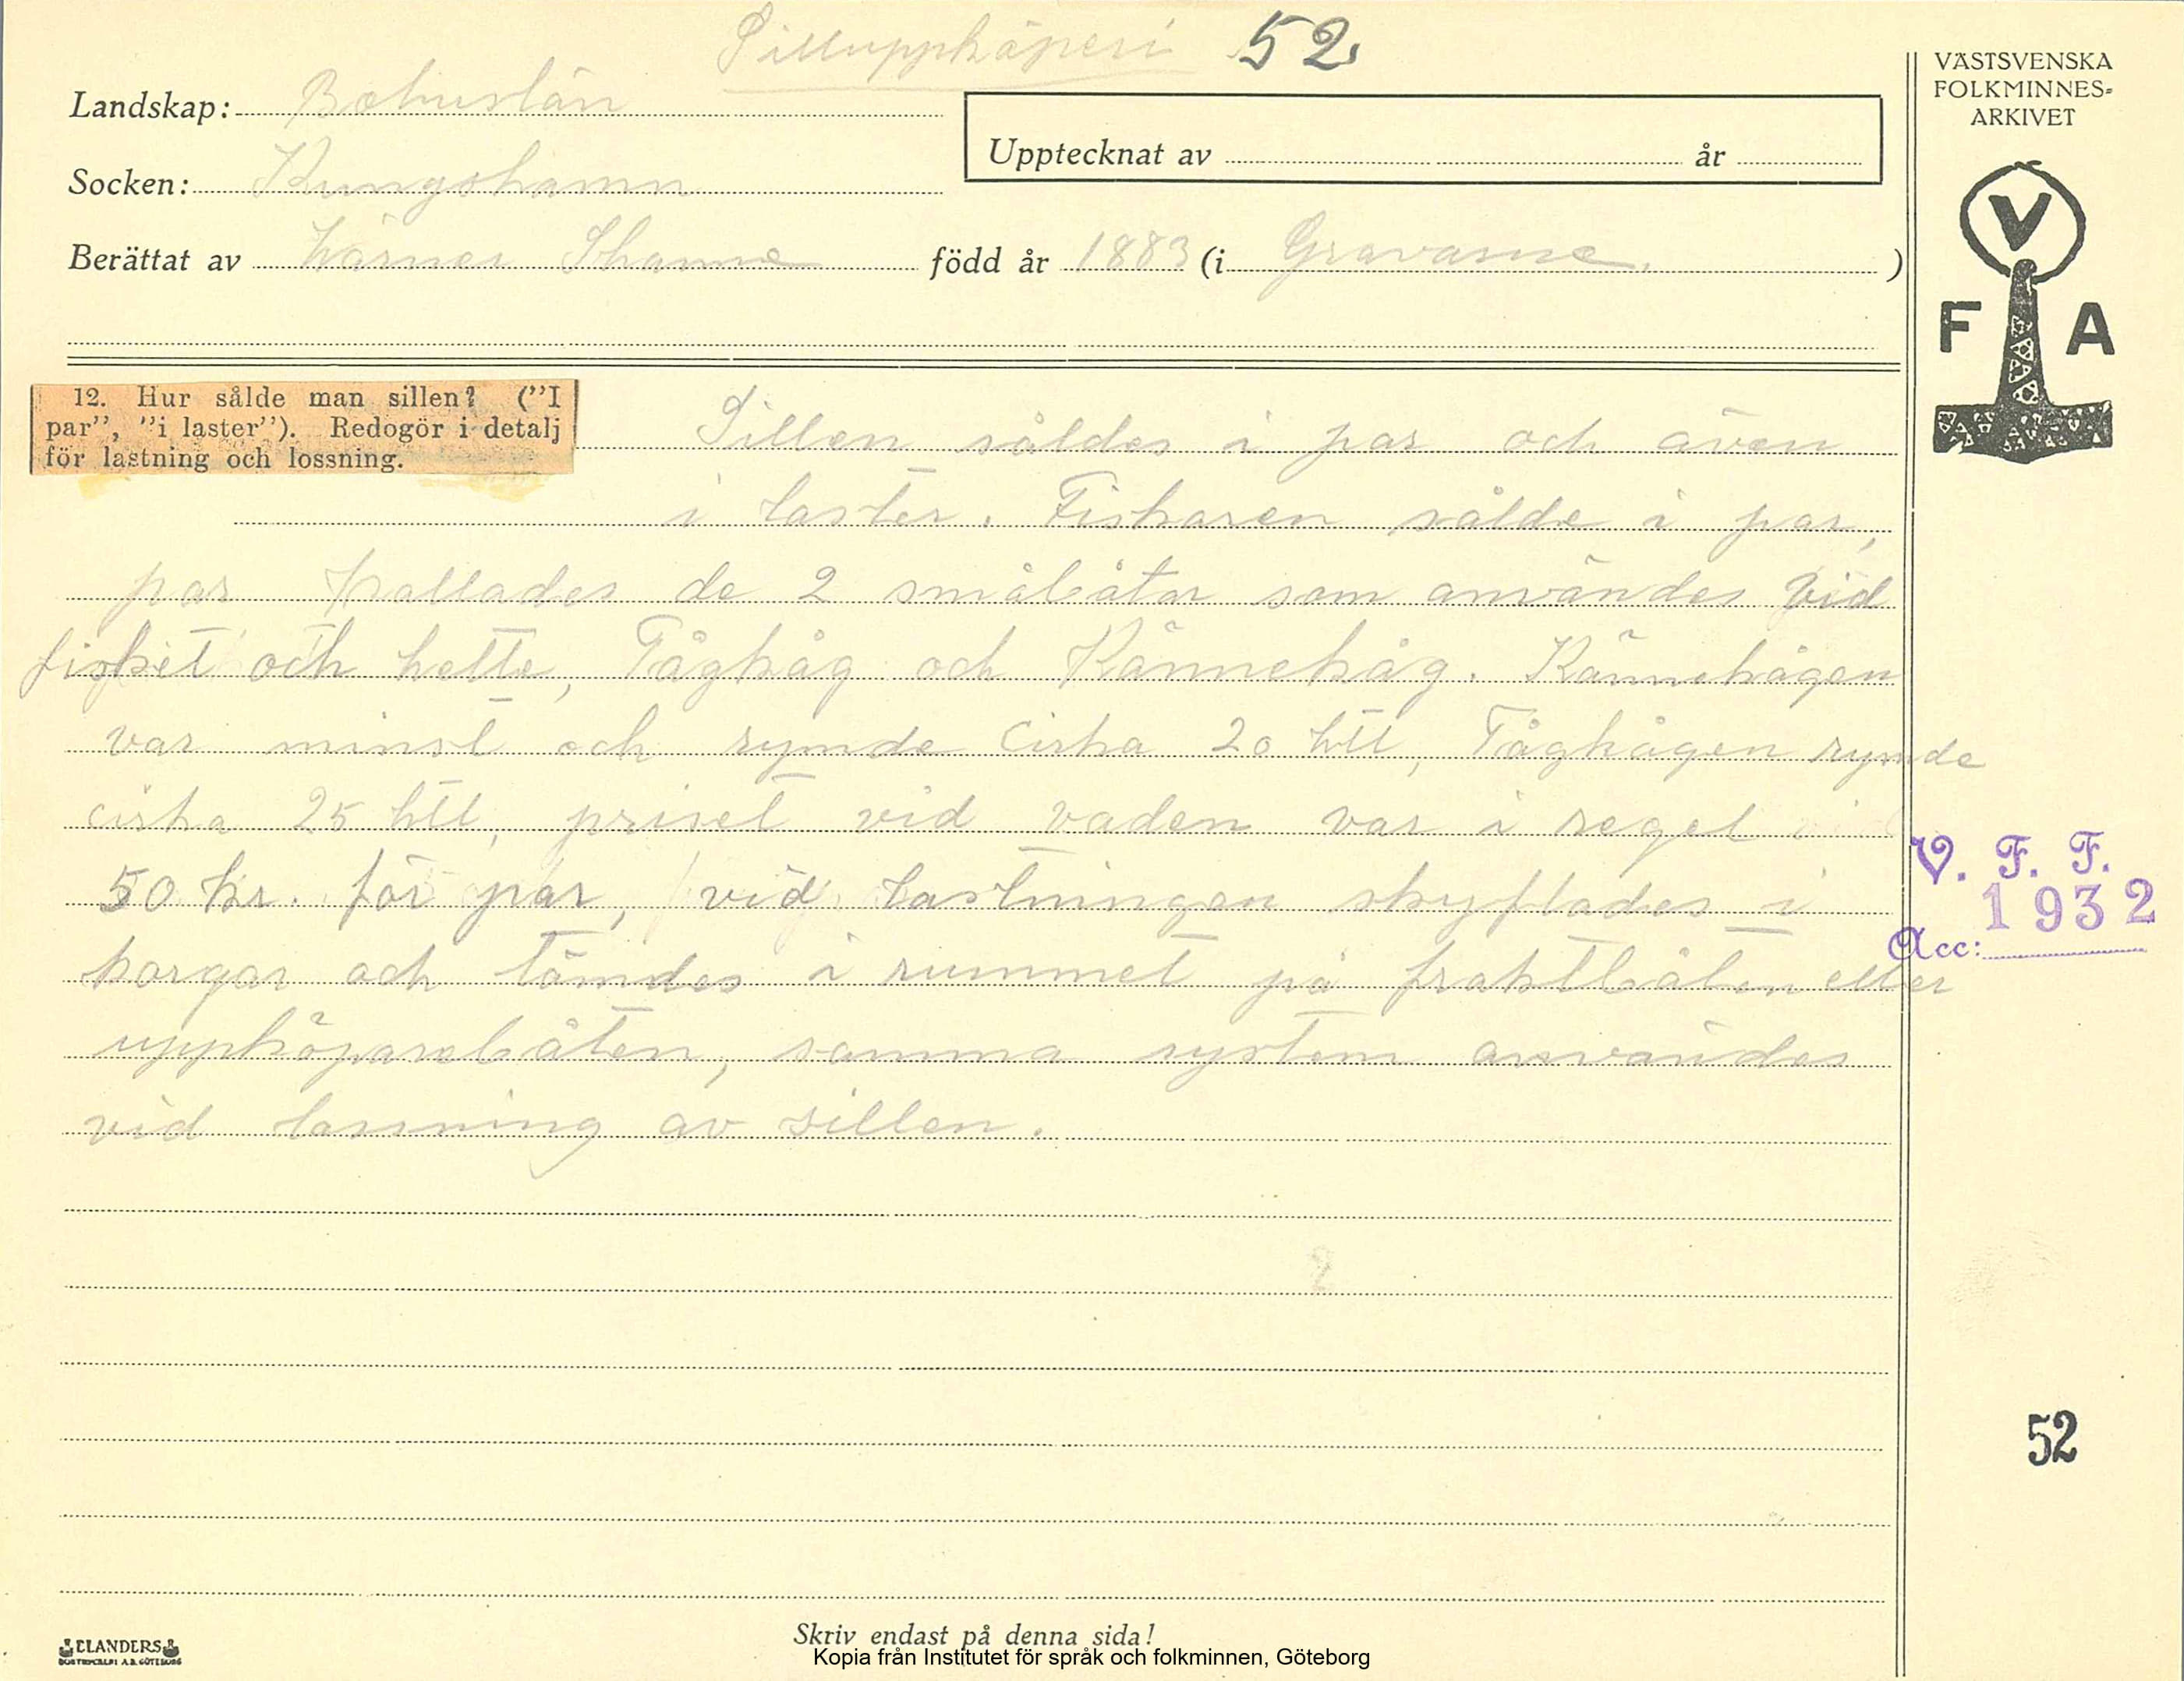 Silluppköperi 52
VÄSTSVENSKA
FOLKMINNES-
ARKIVET
Landskap: Bohuslän
Upptecknat av år
Socken: Kungshamn
Berättat av Wärner Skanne född år 1883 (i Gravarne. )
V
F A
12. Hur sålde man sillen? ("I
par", "i laster"). Redogör i detalj
för lastning och lossning.
Sillen såldes i par och även
i laster. Fiskaren sålde i par,
par kallades de 2 småbåtar som användes vid
fisket och hette, Tågkåg och Kännekåg. Kännekågen
var minst och rymde cirka 20 htl, Tågkågen rymde
cirka 25 htl, priset vid vaden var i regel
50 kr. för par, vid lastningen skyflades i
korgar och tömdes i rummet på fraktbåten eller
uppköparebåten, samma system användes
vid lossning av sillen.
V. F. F.
1932
Acc:
2
52
ELANDERS
BOKTRYCKERI A.B. GÖTEBORG
Skriv endast på denna sida!
Kopia från Institutet för språk och folkminnen, Göteborg